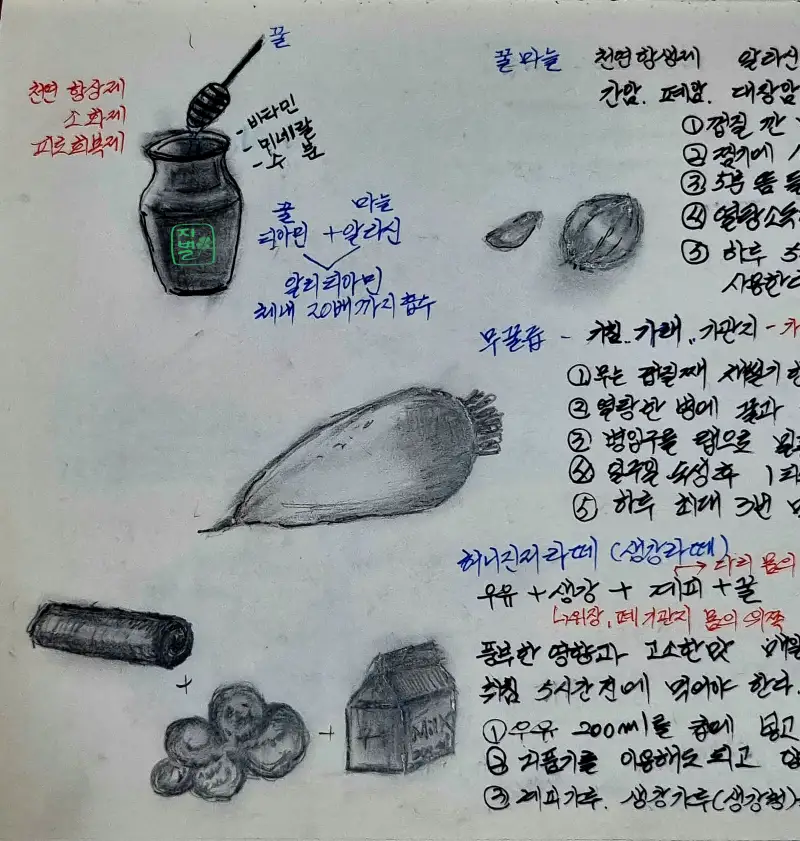 꿀
천연 항생제
소화제
피로회복제
- 비타민
- 미네랄
- 수분
지
벌
꿀 마늘
티아민 + 알리신
알리티아민
체내 20배까지 흡수
꿀마늘 천연항생제 알리신
간암. 폐암. 대장암
① 껍질 깐
② 찜기에
③ 5분 뜸
④ 열탕소독
⑤ 하루 5
사용한다
무꿀즙 - 기침. 가래. 기관지 -
① 무는 껍질째 채썰기
② 열탕한 병에 꿀과
③ 병입구를 랩으로
④ 일주일 숙성후 1
⑤ 하루 최대 3번
허니진저라떼 (생강라떼)
→ 다리 몸의
우유 + 생강 + 계피 + 꿀
↳ 위장, 폐 기관지 몸의 위쪽
풍부한 영향과 고소한맛
취침 5시간 전에 먹어야 한다.
① 우유 200ml를 컵에 넣고
② 거품기를 이용해도 되고
③ 계피가루. 생강가루(생강청)
+
+
Milk